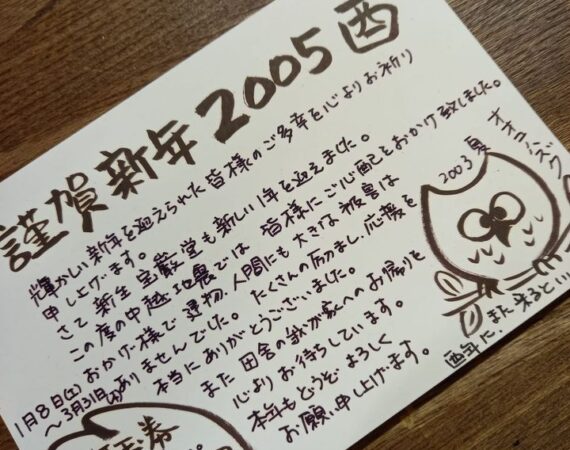 謹賀新年2005酉
輝かしい新年を迎えられた皆様のご多幸を心よりお祈り
申し上げます。
さて 新生 宝巌堂も新しい1年を迎えました。
この度の中越地震では 皆様にご心配をおかけ致しました。
おかげ様で建物、人間にも大きな被害は
ありませんでした。たくさんの励まし、応援を
本当にありがとうございました。
また 田舎の我が家へのお帰りを
心よりお待ちしています。
本年もどうぞよろしく
お願い申し上げます。
2003夏 オオコノハズク
酉年に、また来ると
1月8日(土)
〜3月31日(木)
券